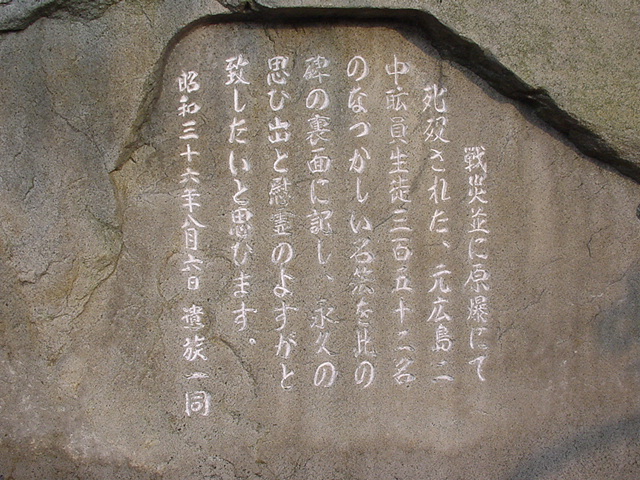 戦災並に原爆にて
死歿された、元広島二
中職員生徒三百五十二名
のなつかしい名簿を此の
碑の裏面に記し、永久の
思ひ出と慰霊のよすがと
致したいと思ひます。
昭和三十六年八月六日 遺族一同